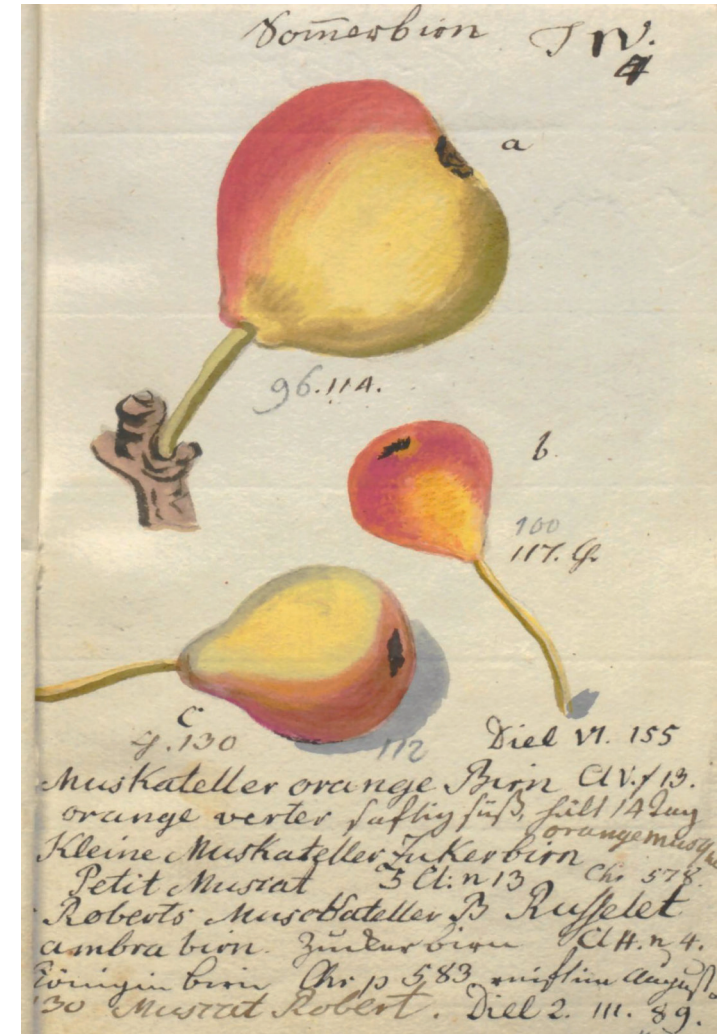 Som̄erbirn T IV.
4
a
96. 114.
b.
100
117. G.
C
G. 130
112
Diel VI. 155
Muskateller orange Birn Cl V. f 13.
orange verter saftig süß, hält 14 Tag
orange musq
Kleine Muskateller Zukerbirn
Petit Muscat 3 Cl: n 13 Chr 578.
Roberts Muskateller B Russelet
ambra birn. Zuckerbirn Cl 4. n 4.
Königin birn Chr p 583. reift im August.
130 Muscat Robert. Diel 2. III. 89.